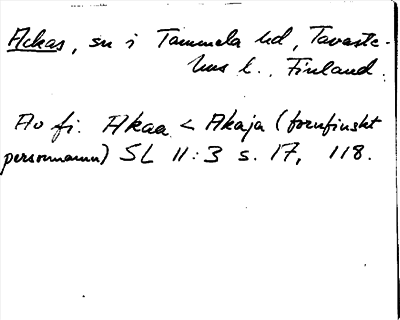 Ackas, sn i Tammela hd, Tavaste-
hus l., Finland.
Av fi. Akaa < Akaja (fornfinskt
personnamn) SL 11:3 s. 17, 118.